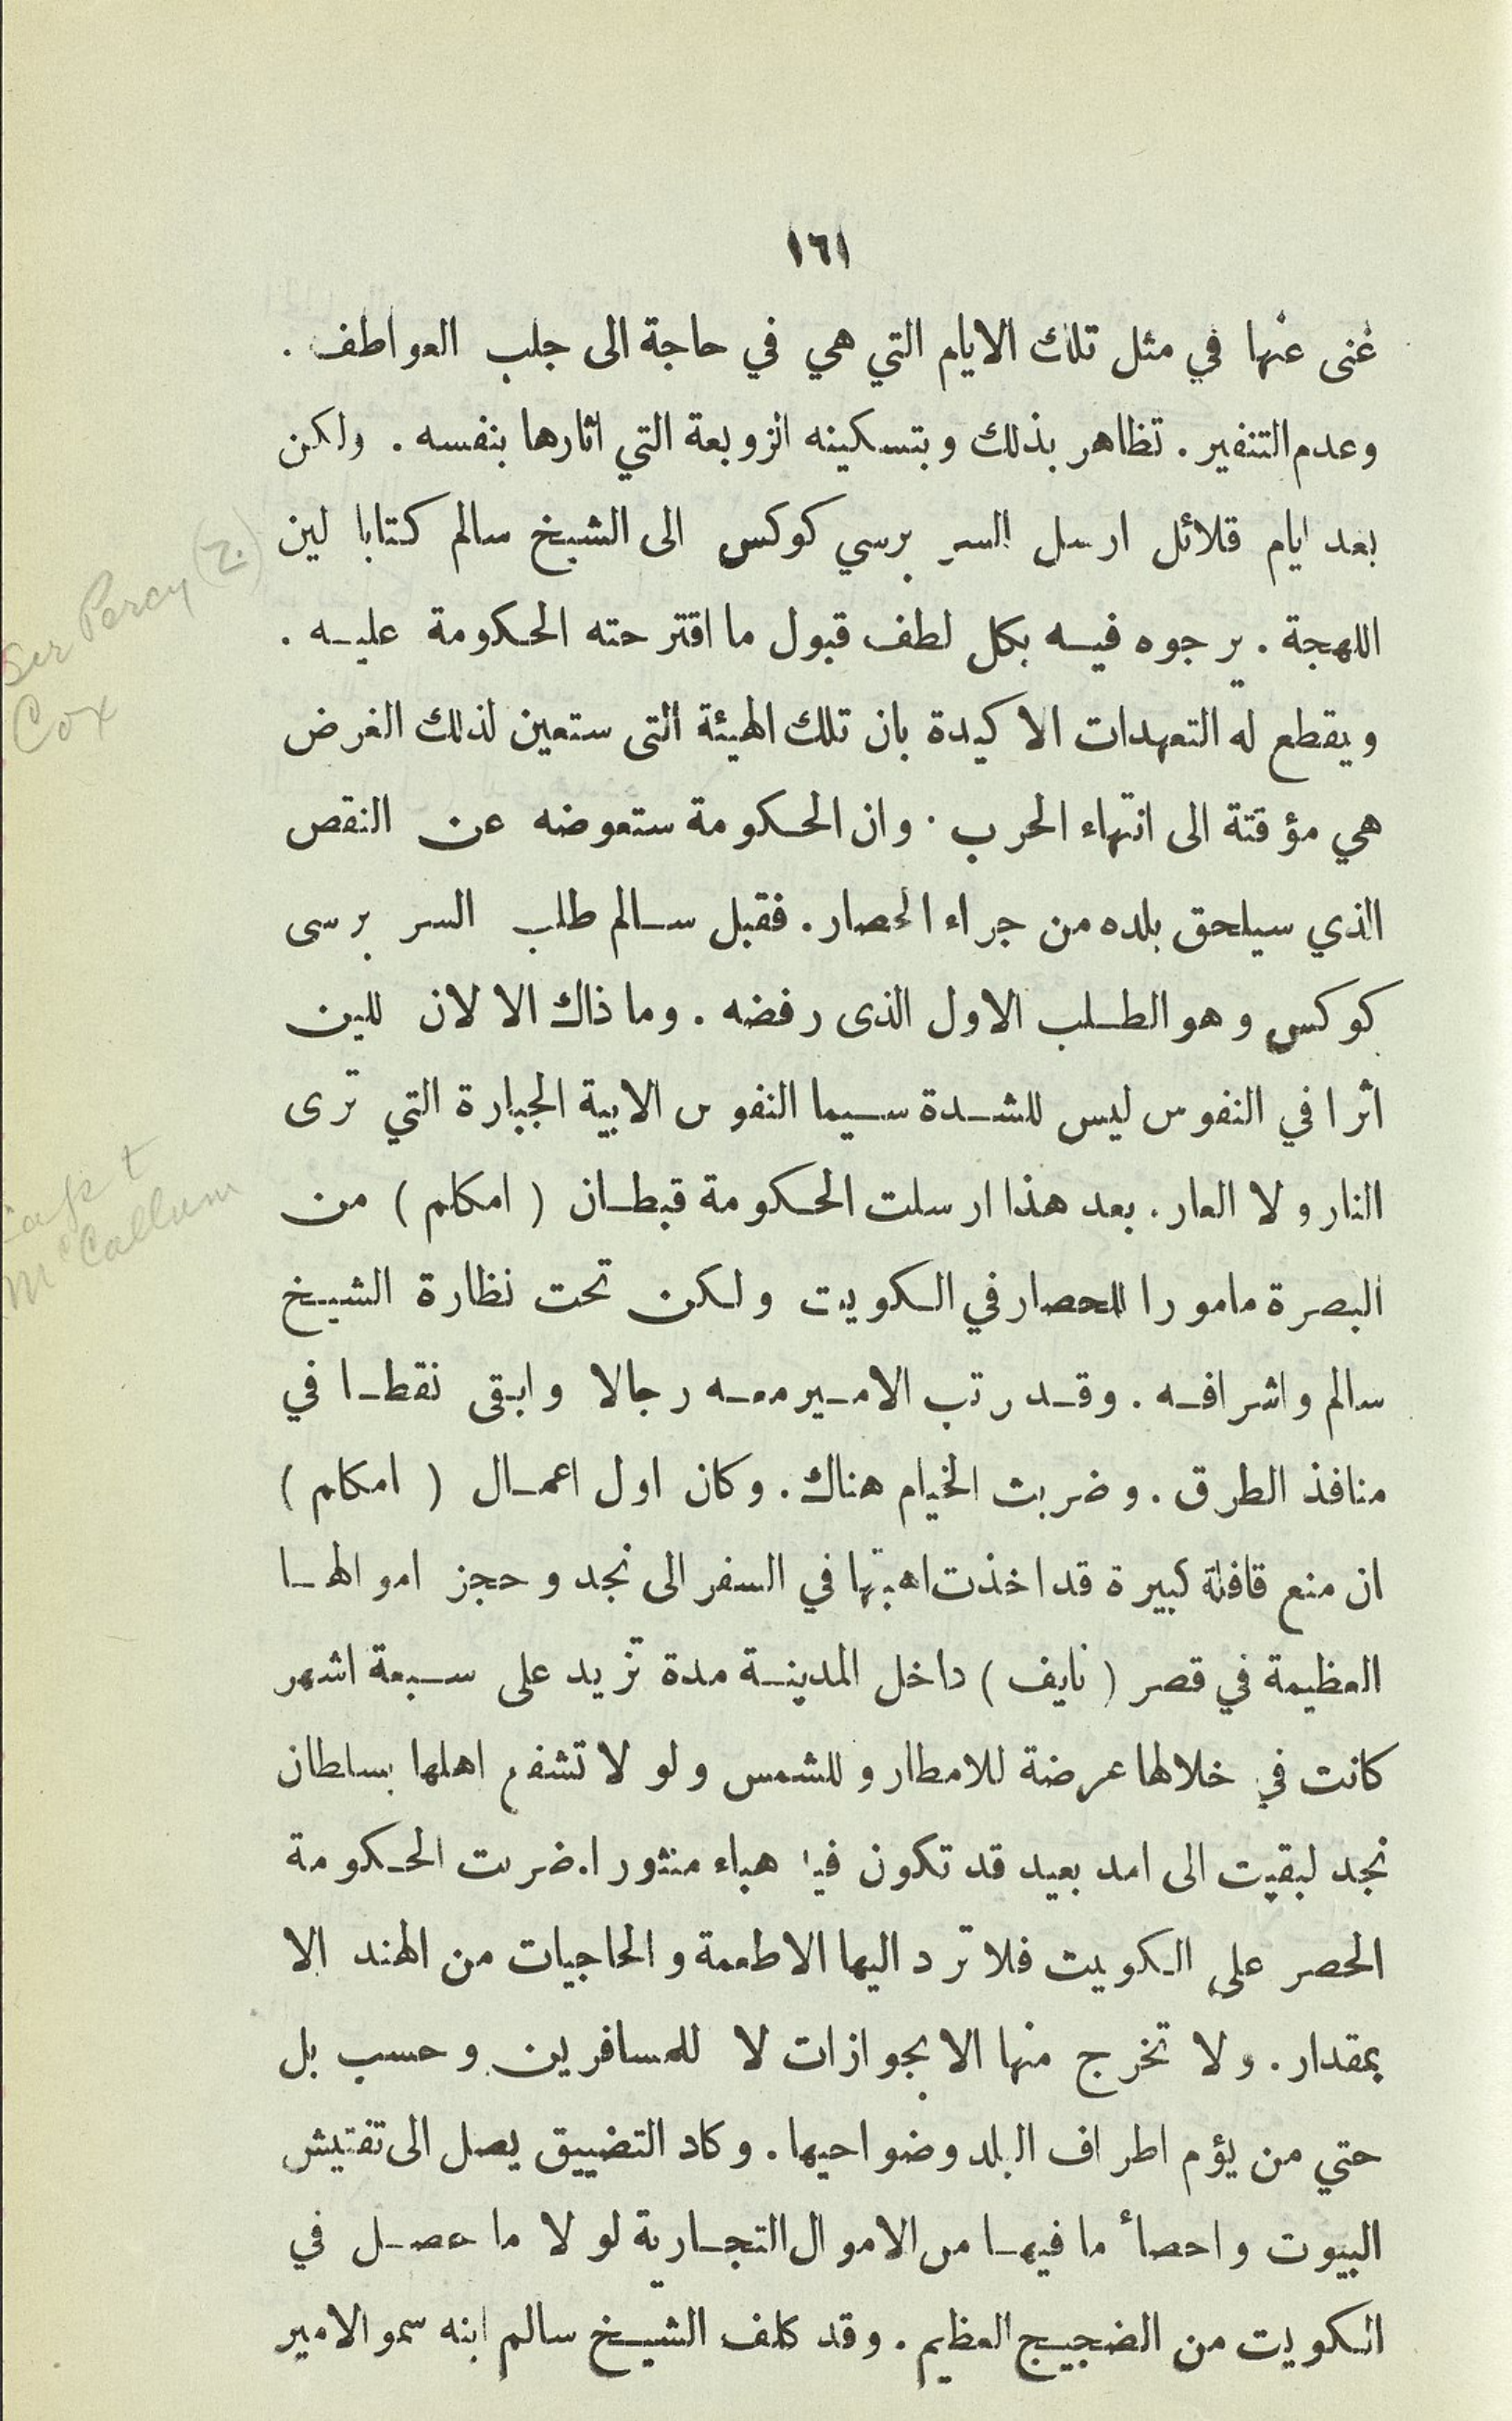 ١٦١
غنى عنها في مثل تلك الايام التي هي في حاجة الى جلب العواطف .
وعدم التنفير . تظاهر بذلك وبتسكينه الزوبعة التي اثارها بنفسه . ولكن
بعد ايام قلائل ارسل السر برسي كوكس الى الشيخ سالم كتابا لين
اللهجة . يرجوه فيه بكل لطف قبول ما اقترحته الحكومة عليه .
ويقطع له التعهدات الاكيدة بان تلك الهيئة التى ستعين لذلك الغرض
هي مؤقتة الى انتهاء الحرب . وان الحكومة ستعوضه عن النقص
الذي سيلحق بلده من جراء الحصار . فقبل سالم طلب السر برسى
كوكس وهو الطلب الاول الذى رفضه . وما ذاك الا لان للين
اثرا في النفوس ليس للشدة سيما النفوس الابية الجبارة التي ترى
النار ولا العار . بعد هذا ارسلت الحكومة قبطان ( امكلم ) من
البصرة مامورا للحصار في الكويت ولكن تحت نظارة الشيخ
سالم واشرافه . وقد رتب الامير معه رجالا وابقى نقطا في
منافذ الطرق . وضربت الخيام هناك . وكان اول اعمال ( امكلم )
ان منع قافلة كبيرة قد اخذت اهبتها في السفر الى نجد وحجز اموالها
العظيمة في قصر ( نايف ) داخل المدينة مدة تزيد على سبعة اشهر
كانت في خلالها عرضة للامطار وللشمس ولو لا تشفع اهلها بسلطان
نجد لبقيت الى امد بعيد قد تكون فيه هباء منثورا . ضربت الحكومة
الحصر على الكويت فلا ترد اليها الاطعمة والحاجيات من الهند الا
بمقدار . ولا تخرج منها الا بجوازات لا للمسافرين وحسب بل
حتي من يؤم اطراف البلد وضواحيها . وكاد التضييق يصل الى تفتيش
البيوت واحصأ ما فيها من الاموال التجارية لو لا ما حصل في
الكويت من الضجيج العظيم . وقد كلف الشيخ سالم ابنه سمو الامير
Sir Percy (Z.)
Cox
Capt
McCallum